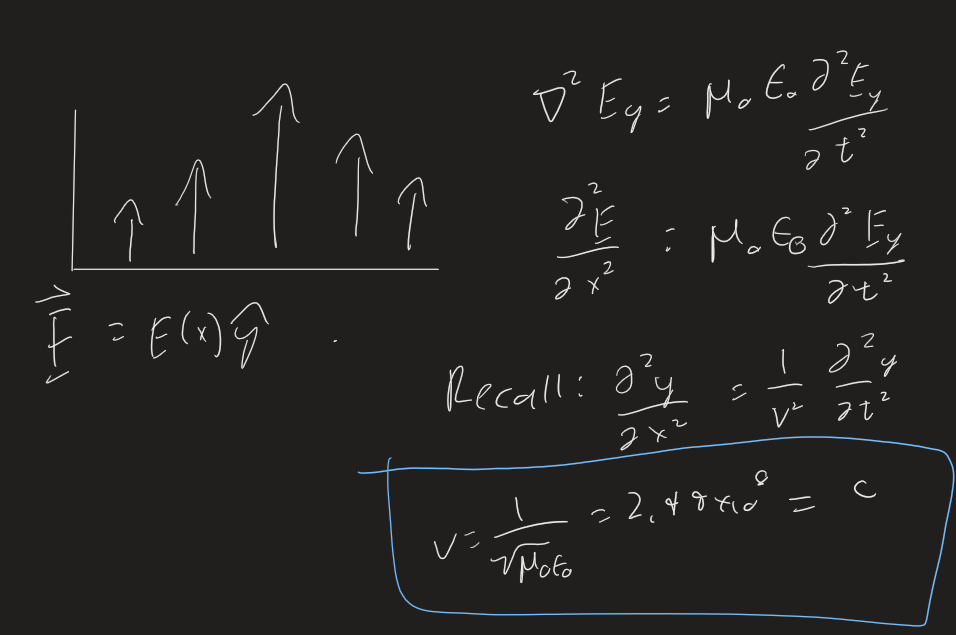 ∇² E_y = μ₀ ε₀ ∂²E_y / ∂t²
∂²E / ∂x² = μ₀ ε₀ ∂²E_y / ∂t²
E⃗ = E(x) ŷ
Recall: ∂²y / ∂x² = 1 / v² ∂²y / ∂t²
v = 1 / √μ₀ε₀ = 2.98 x10⁸ = c